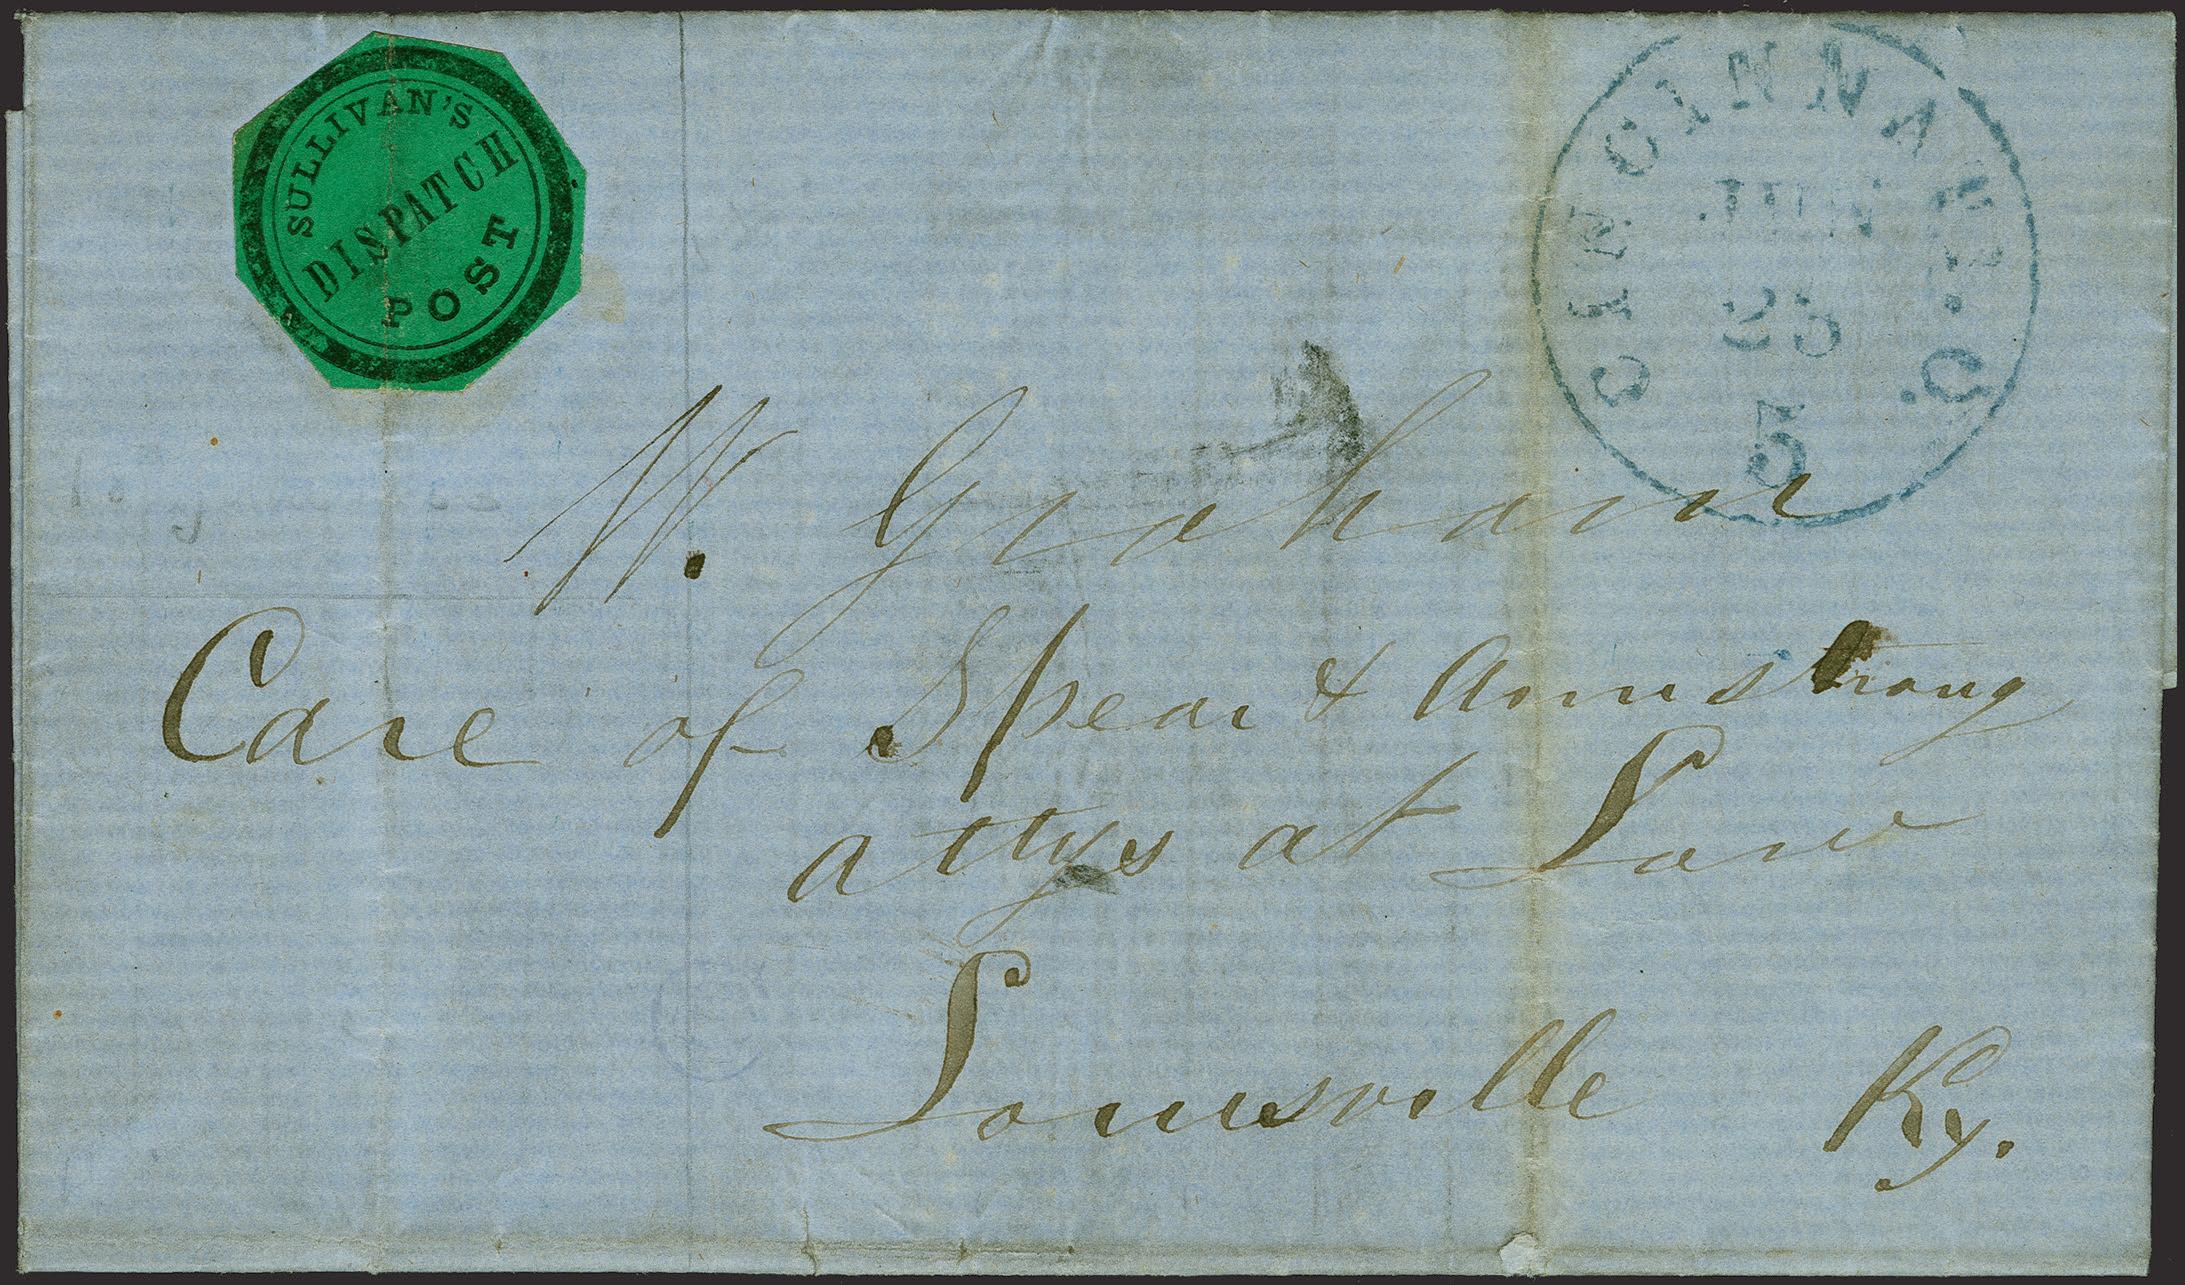 SULLIVAN'S
DISPATCH
POST
CINCINNATI. O.
JUN
25
5
W. Graham
Care of Spear & Armstrong
attys at Law
Louisville Ky.